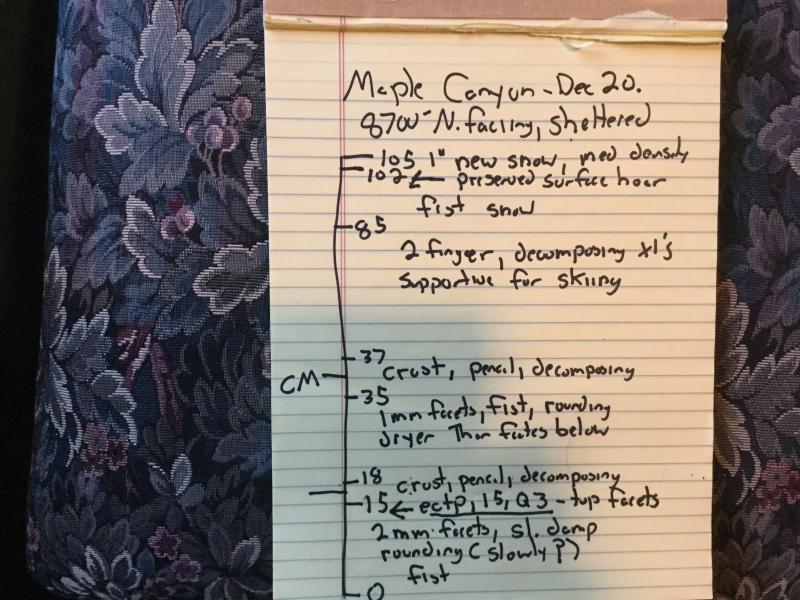 Maple Canyon - Dec 20.
8700' N. facing, sheltered
105 1" new snow, med density
102 ← preserved surface hoar
fist snow
85
2 finger, decomposing xl's
supportive for skiing
37
crust, pencil, decomposing
CM
35
1mm facets, fist, rounding
dryer than facets below
18 crust, pencil, decomposing
15 ← ectp, 15, Q3 - top facets
2 mm facets, sl. damp
rounding (slowly?)
fist
0